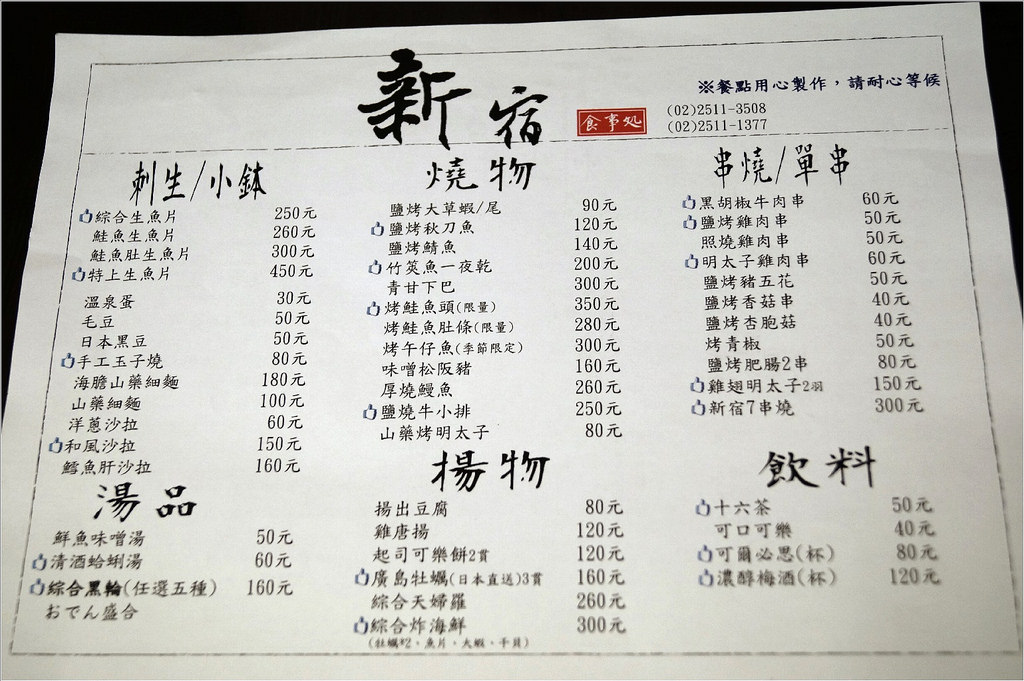 新宿 食事処
※餐點用心製作，請耐心等候
(02)2511-3508
(02)2511-1377
刺生/小鉢
綜合生魚片 250元
鮭魚生魚片 260元
鮭魚肚生魚片 300元
特上生魚片 450元
溫泉蛋 30元
毛豆 50元
日本黑豆 50元
手工玉子燒 80元
海膽山藥細麵 180元
山藥細麵 100元
洋蔥沙拉 60元
和風沙拉 150元
鱈魚肝沙拉 160元
湯品
鮮魚味噌湯 50元
清酒蛤蜊湯 60元
綜合黑輪(任選五種) 160元
おでん盛合
燒物
鹽烤大草蝦/尾 90元
鹽烤秋刀魚 120元
鹽烤鯖魚 140元
竹筴魚一夜乾 200元
青甘下巴 300元
烤鮭魚頭(限量) 350元
烤鮭魚肚條(限量) 280元
烤午仔魚(季節限定) 300元
味噌松阪豬 160元
厚燒鰻魚 260元
鹽燒牛小排 250元
山藥烤明太子 80元
揚物
揚出豆腐 80元
雞唐揚 120元
起司可樂餅2貫 120元
廣島牡蠣(日本直送)3貫 160元
綜合天婦羅 260元
綜合炸海鮮 300元
(牡蠣*2、魚片、大蝦、干貝)
串燒/單串
黑胡椒牛肉串 60元
鹽烤雞肉串 50元
照燒雞肉串 50元
明太子雞肉串 60元
鹽烤豬五花 50元
鹽烤香菇串 40元
鹽烤杏胞菇 40元
烤青椒 50元
鹽烤肥腸2串 80元
雞翅明太子2羽 150元
新宿7串燒 300元
飲料
十六茶 50元
可口可樂 40元
可爾必思(杯) 80元
濃醇梅酒(杯) 120元